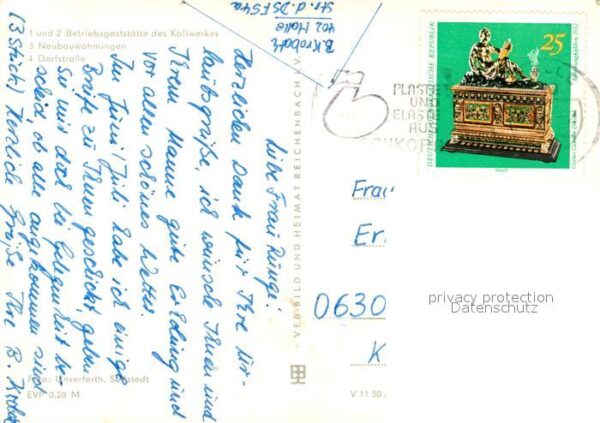 1 und 2 Betriebsgaststätte des Kaliwerkes
3 Neubauwohnungen
4 Dorfstraße
B. Krobatz
402 Halle
Str. d. DSF 54a
Liebe Frau Runge!
Herzlichen Dank für Ihre Ur-
laubsgrüße, ich wünsche Ihnen und
Ihrem Manne gute Erholung und
vor allem schönes Wetter.
Im Juni/Juli habe ich einige
Briefe zu Ihnen geschickt, geben
Sie mir doch bei Gelegenheit Be-
scheid, ob alle angekommen sind
(3 Stück) Herzliche Grüße Ihre B. Krobatz
Foto: Unverferth,
EVP 0,20 M
VEB BILD UND HEIMAT REICHENBACH I. V.
V 11 50
PLASTE
UND
ELASTE
AUS
SCHKOPAU
25
DEUTSCHE DEMOKRATISCHE REPUBLIK
Frau
Er
0630
K
privacy protection
Datenschutz